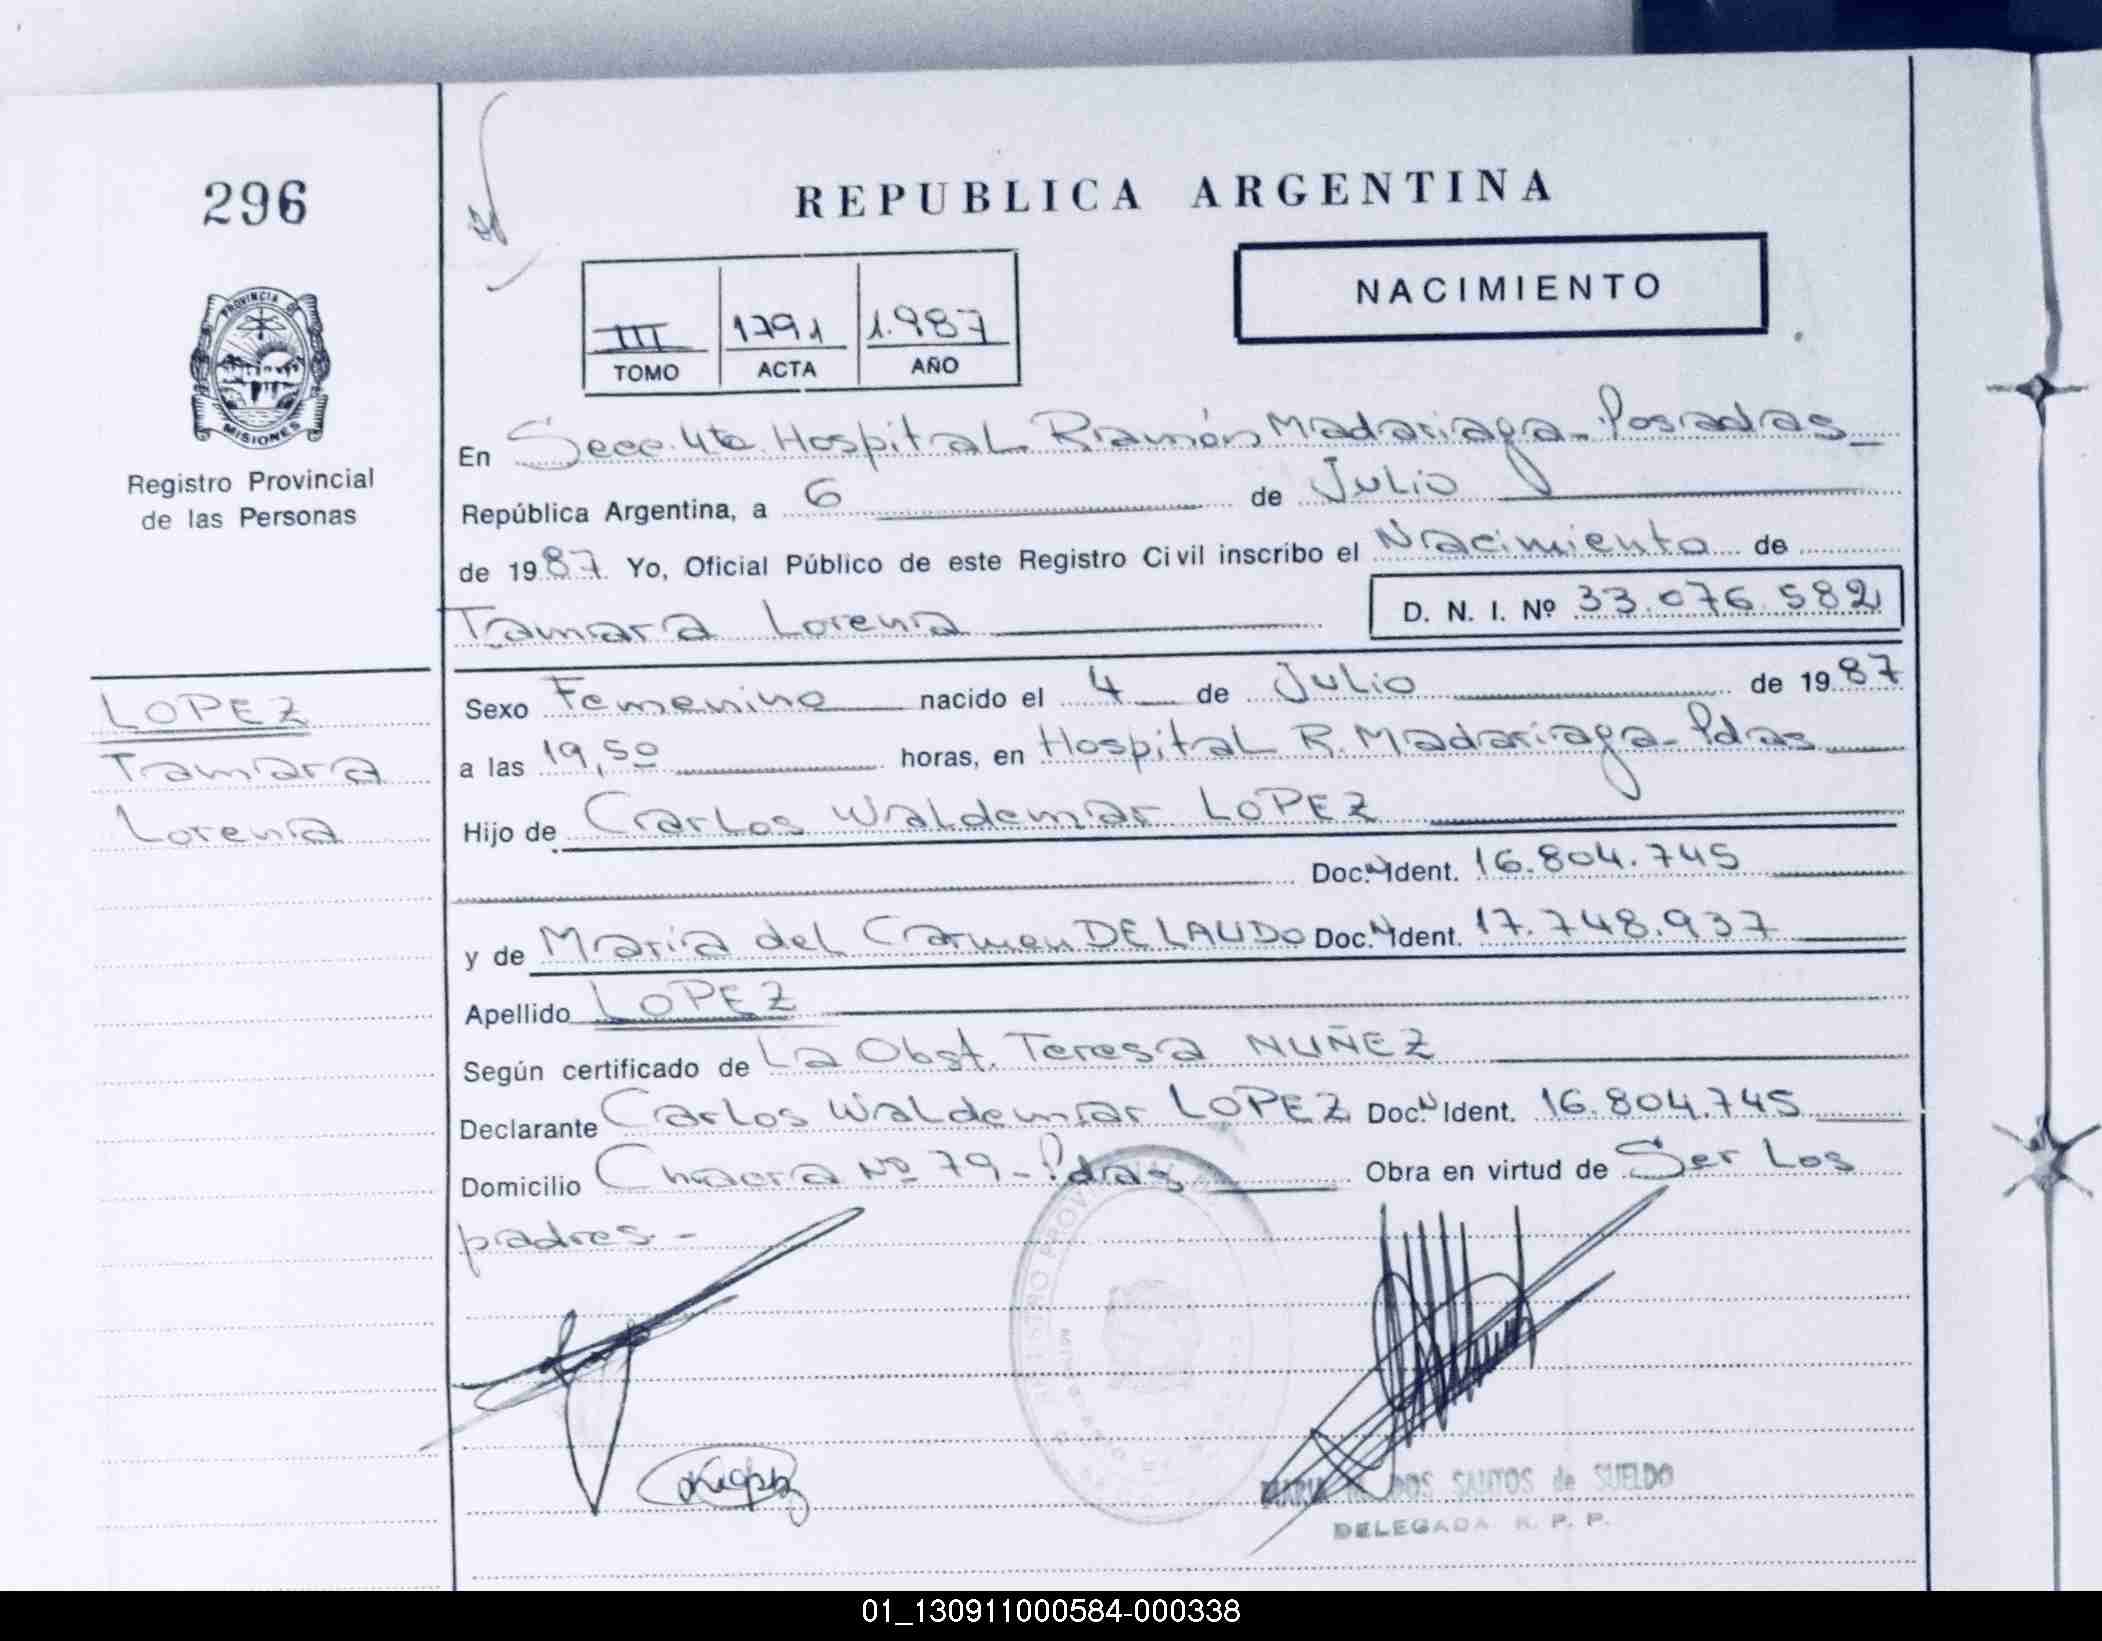 296
PROVINCIA DE
MISIONES
Registro Provincial
de las Personas
LOPEZ
Tamara
Lorena
REPUBLICA ARGENTINA
NACIMIENTO
III 1791 1.987
TOMO ACTA AÑO
En Secc. 4ta. Hospital Ramón Madariaga - Posadas
República Argentina, a 6 de Julio
de 1987. Yo, Oficial Público de este Registro Civil inscribo el Nacimiento de
Tamara Lorena D. N. I. Nº 33.076.582
Sexo Femenino nacido el 4 de Julio de 1987
a las 19,50 horas, en Hospital R. Madariaga - Pdas
Hijo de Carlos Waldemar LOPEZ
Doc. N Ident. 16.804.745
y de Maria del Carmen DELAUDO Doc. N Ident. 17.748.937
Apellido LOPEZ
Según certificado de La Obst. Teresa NUÑEZ
Declarante Carlos Waldemar LOPEZ Doc. N Ident. 16.804.745
Domicilio Chacra Nº 79 - Pdas Obra en virtud de Ser Los
padres. -
DOS SANTOS de SUELDO
DELEGADA R. P. P.
01_130911000584-000338